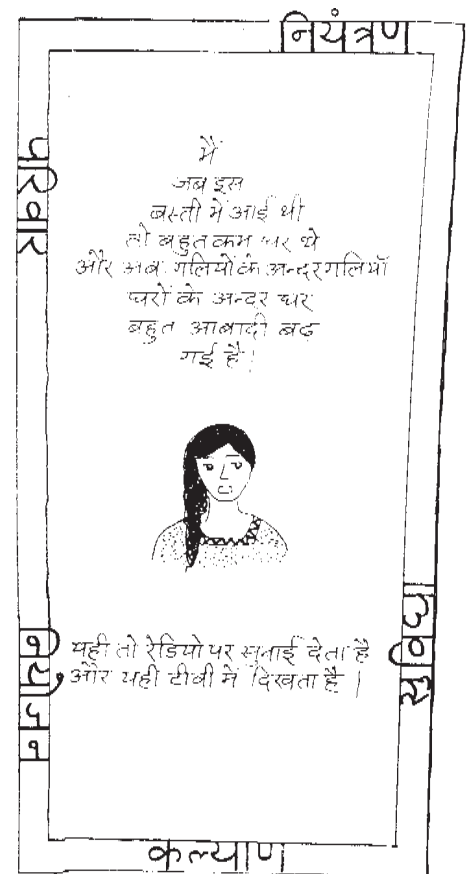 नियंत्रण
परिवार
मैं
जब इस
बस्ती में आई थी
तो बहुत कम घर थे
और अब गलियों के अन्दर गलियाँ
घरों के अन्दर घर
बहुत आबादी बढ़
गई है।
यही तो रेडियो पर सुनाई देता है
और यही टीबी में दिखता है।
कल्याण